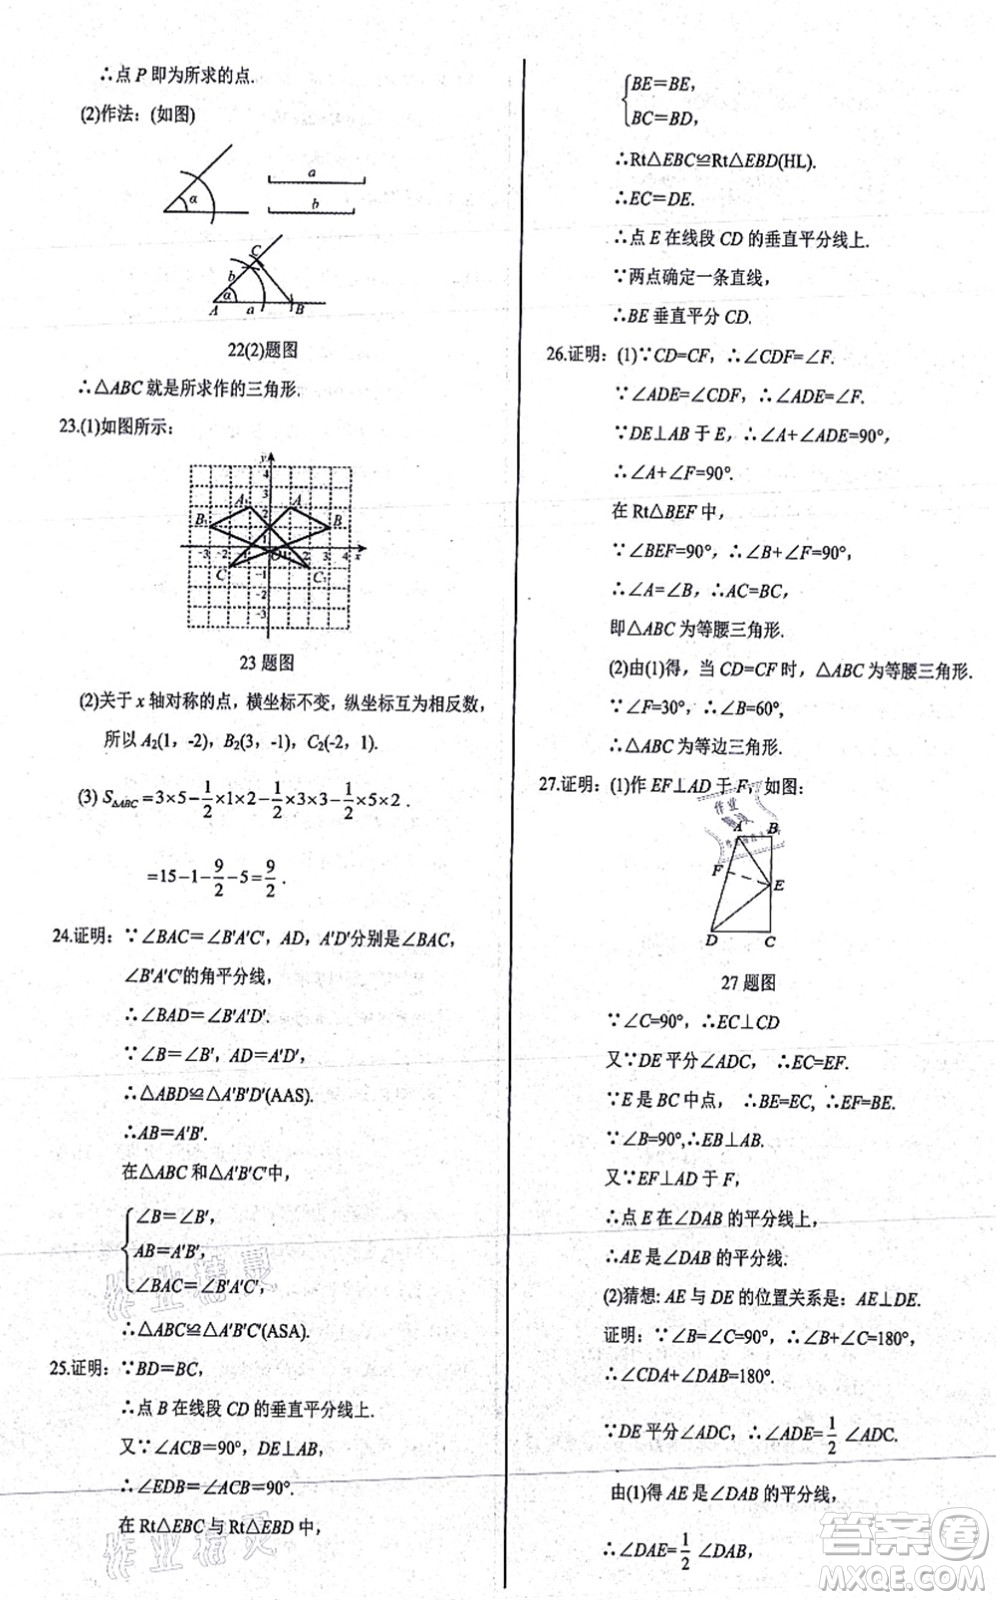 ∴点 P 即为所求的点.
(2)作法：(如图)
α
a
b
C
b
α
A
a
B
22(2)题图
∴△ABC 就是所求作的三角形.
23.(1)如图所示：
y
4
3
A₁
2
A
B₁
1
B
-3 -2 -1 O 1 2 3 4 x
C
-1
C₁
-2
-3
23 题图
(2)关于 x 轴对称的点，横坐标不变，纵坐标互为相反数，
所以 A₂(1，-2)，B₂(3，-1)，C₂(-2，1).
(3) S△ABC=3×5-1/2×1×2-1/2×3×3-1/2×5×2 .
=15-1-9/2-5=9/2 .
24.证明：∵∠BAC=∠B'A'C'，AD，A'D'分别是∠BAC，
∠B'A'C'的角平分线，
∴∠BAD=∠B'A'D'.
∵∠B=∠B'，AD=A'D'，
∴△ABD≌△A'B'D'(AAS).
∴AB=A'B'.
在△ABC 和△A'B'C'中，
∠B=∠B'，
AB=A'B'，
∠BAC=∠B'A'C'，
∴△ABC≌△A'B'C'(ASA).
25.证明：∵BD=BC，
∴点 B 在线段 CD 的垂直平分线上.
又∵∠ACB=90°，DE⊥AB，
∴∠EDB=∠ACB=90°.
在 Rt△EBC 与 Rt△EBD 中，
BE=BE，
BC=BD，
∴Rt△EBC≌Rt△EBD(HL).
∴EC=DE.
∴点 E 在线段 CD 的垂直平分线上.
∵两点确定一条直线，
∴BE 垂直平分 CD.
26.证明：(1)∵CD=CF，∴∠CDF=∠F.
∵∠ADE=∠CDF，∴∠ADE=∠F.
∵DE⊥AB 于 E，∴∠A+∠ADE=90°，
∴∠A+∠F=90°.
在 Rt△BEF 中，
∵∠BEF=90°，∴∠B+∠F=90°，
∴∠A=∠B，∴AC=BC，
即△ABC 为等腰三角形.
(2)由(1)得，当 CD=CF 时，△ABC 为等腰三角形.
∵∠F=30°，∴∠B=60°，
∴△ABC 为等边三角形.
27.证明：(1)作 EF⊥AD 于 F，如图：
作业
A B
F
E
D C
27 题图
∵∠C=90°，∴EC⊥CD
又∵DE 平分∠ADC， ∴EC=EF.
∵E 是 BC 中点， ∴BE=EC, ∴EF=BE.
∵∠B=90°,∴EB⊥AB.
又∵EF⊥AD 于 F，
∴点 E 在∠DAB 的平分线上，
∴AE 是∠DAB 的平分线.
(2)猜想: AE 与 DE 的位置关系是：AE⊥DE.
证明：∵∠B=∠C=90°，∴∠B+∠C=180°，
∴∠CDA+∠DAB=180°.
∵DE 平分∠ADC，∴∠ADE=1/2 ∠ADC.
由(1)得 AE 是∠DAB 的平分线，
∴∠DAE=1/2 ∠DAB，
作业精灵
作业精灵
答案圈
MXQE.COM